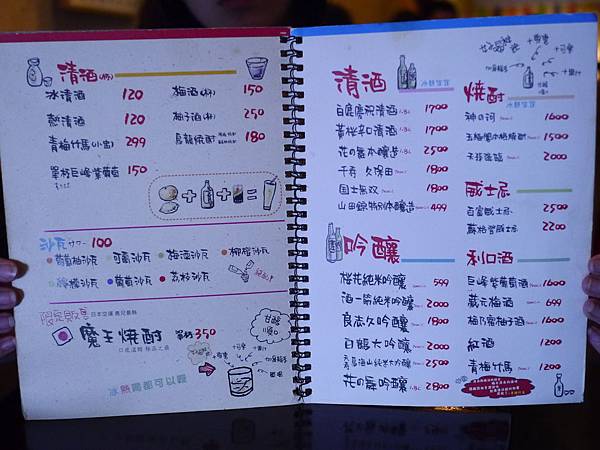 清酒(杯)
冰清酒 120
熱清酒 120
青梅竹馬(小壺) 299
單杯巨峰紫葡萄 150
梅酒(杯) 150
柚子酒(杯) 250
烏龍燒酎 180
沙瓦サワー 100
葡萄柚沙瓦 可爾沙瓦 梅酒沙瓦 柳橙沙瓦
檸檬沙瓦 葡萄沙瓦 荔枝沙瓦
限定販售
魔王燒酎 單杯350
甘醇順口
冰熱兩者都可以喔
清酒
白鹿慶祝清酒 1.8L 1700
黃桜辛口清酒 1.8L 1700
花の舞本釀造 1.8L 2500
千壽 久保田 1800
国士無双 1800
山田錦特別本釀造 499
吟釀
桜花純米吟釀 599
油一筋純米吟釀 2000
良志久吟釀 1800
白鶴大吟釀 2000
純米大吟釀 2500
花の舞吟釀 1.8L 2800
燒酎
神の河 1600
1500
2000
威士忌
百富威士忌 2500
蘇格登威士忌 2200
利口酒
巨峰紫葡萄酒 1600
藏元梅酒 699
梅乃宿柚子酒 1600
紅酒 1200
青梅竹馬 1200